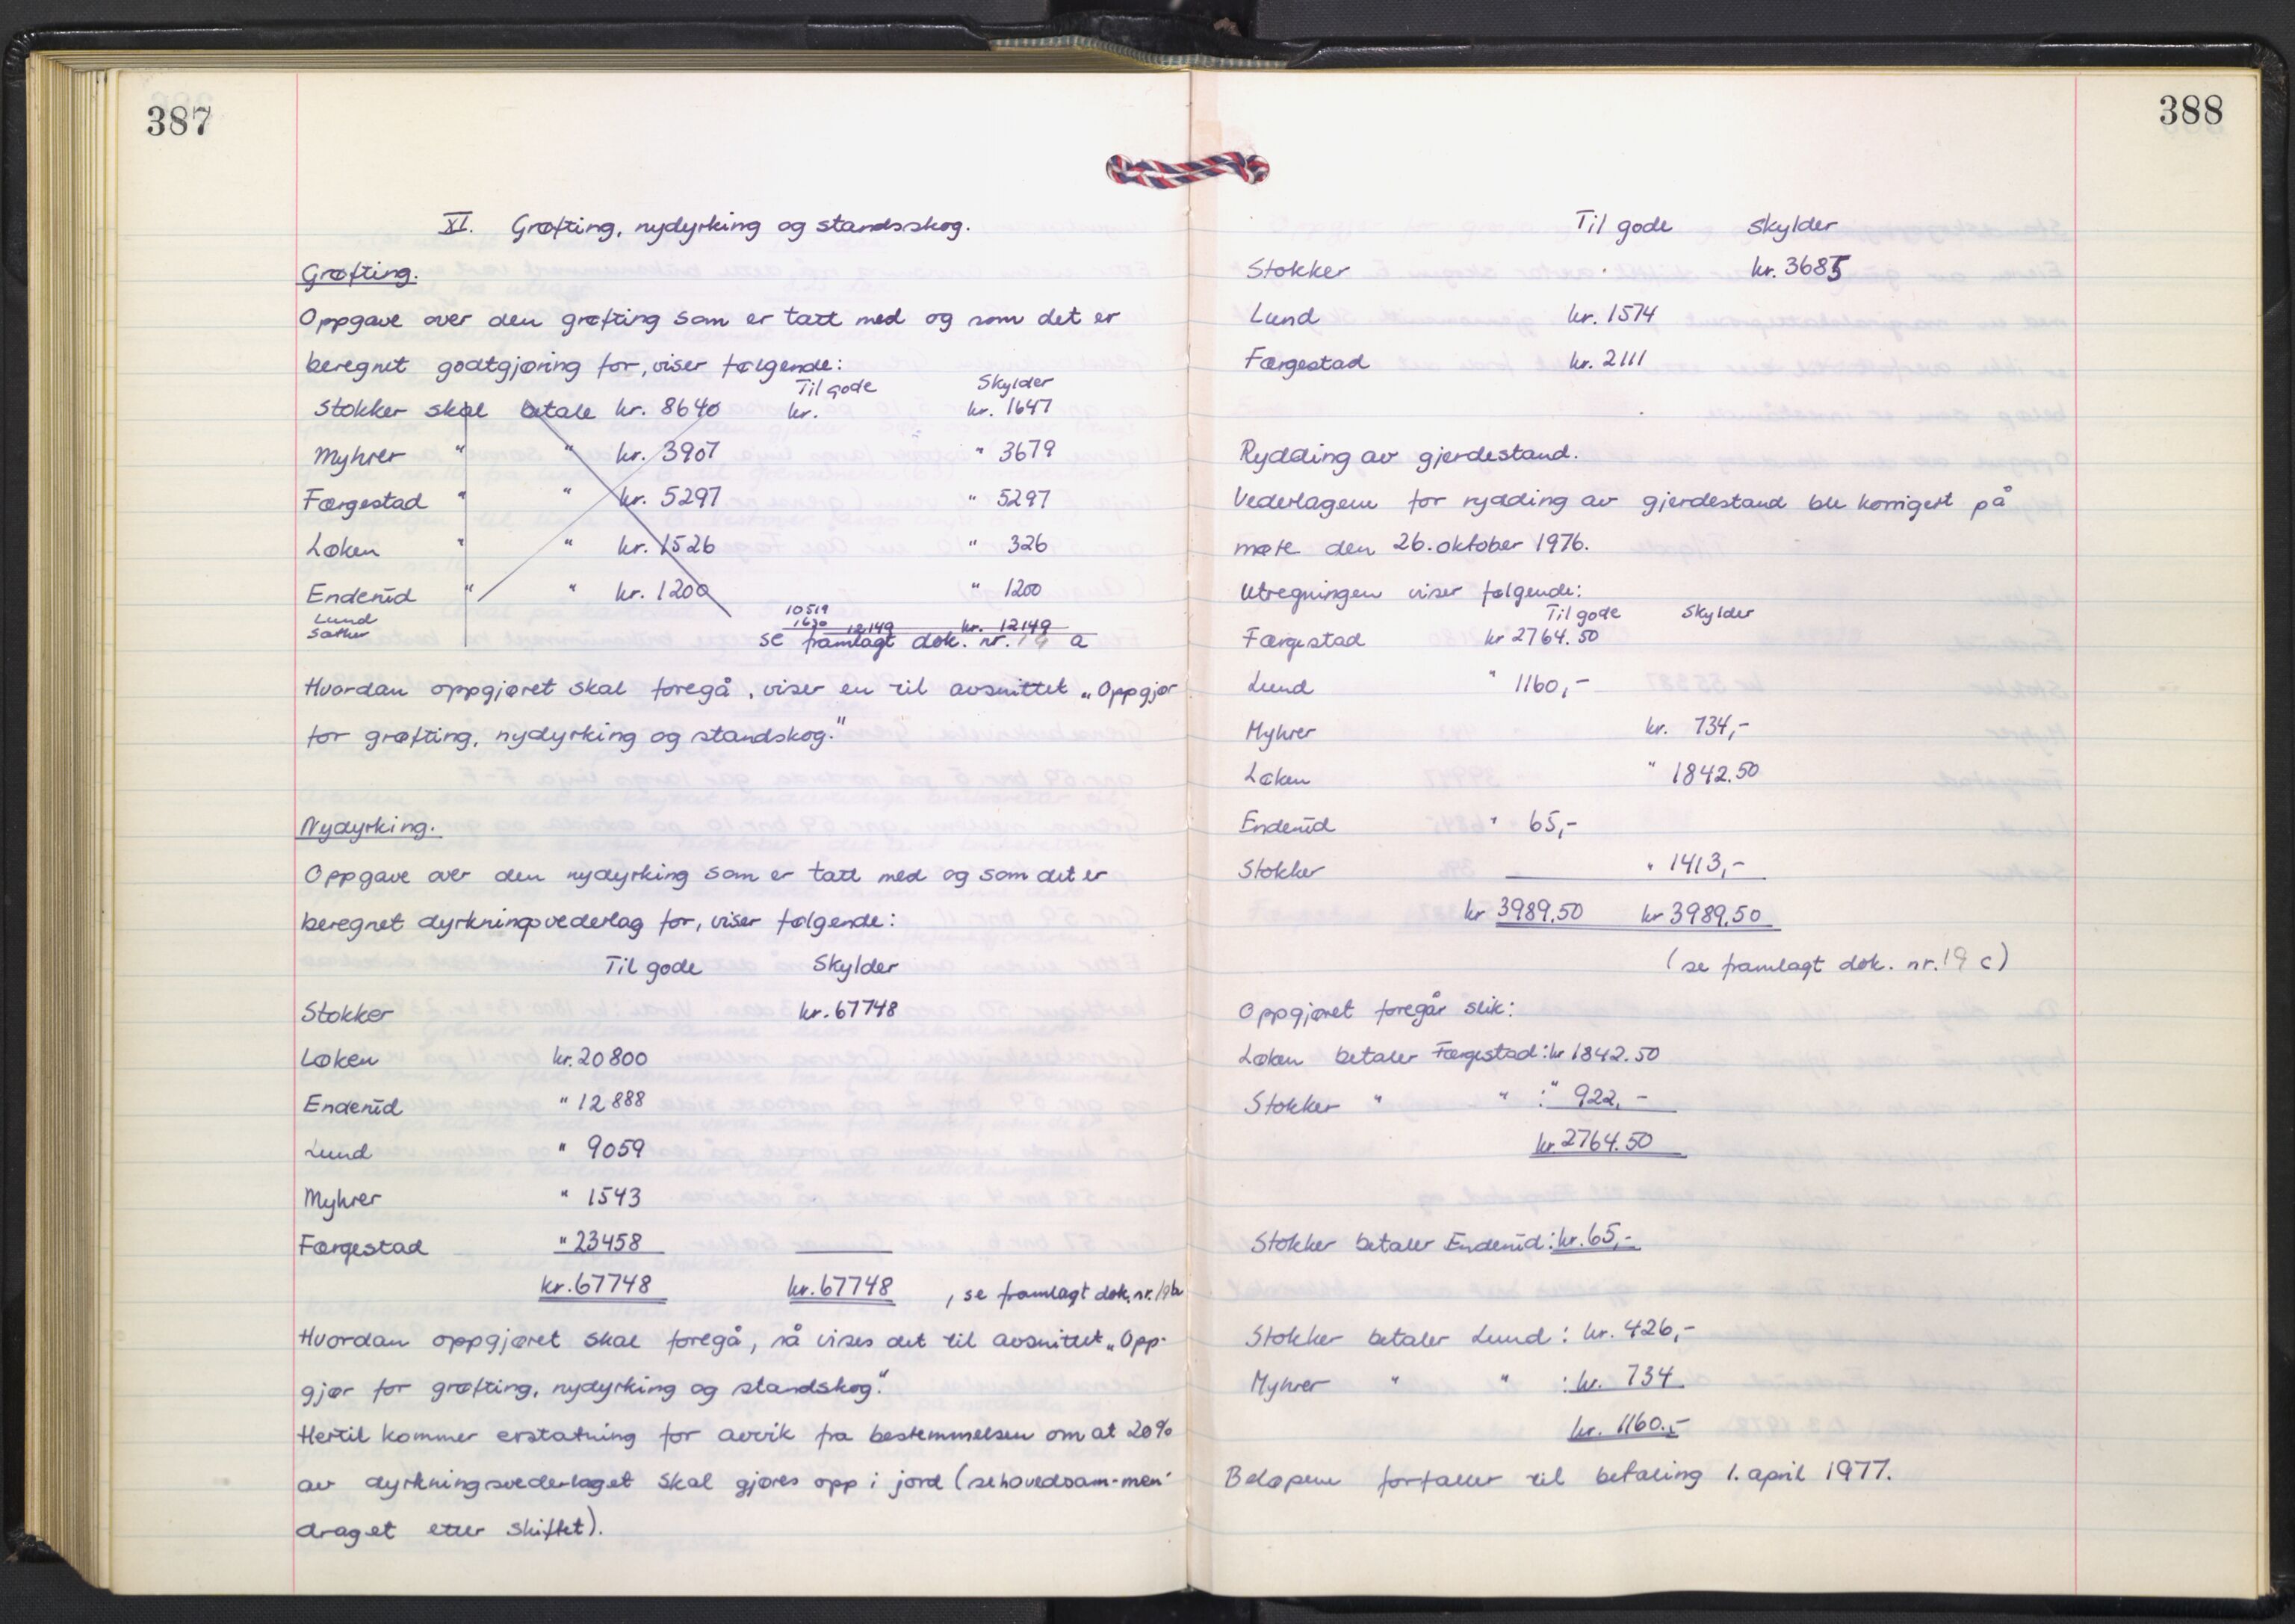 387
XI. Grøfting, nydyrking og standsskog.
Grøfting.
Oppgave over den grøfting som er tatt med og som det er
beregnet godtgjøring for, viser følgende:
Til gode Skylder
Stokker skal betale kr. 8640 kr. kr. 1647
Myhrer " " kr. 3907 " 3679
Færgestad " " kr. 5297 " 5297
Løken " " kr. 1526 " 326
Enderud " " kr. 1200 " 1200
Lund 10519
Sæther 1630 12149 kr. 12149
se framlagt dok. nr. 19 a
Hvordan oppgjøret skal foregå, viser en til avsnittet „Oppgjør
for grøfting, nydyrking og standskog."
Nydyrking.
Oppgave over den nydyrking som er tatt med og som det er
beregnet dyrkningsvederlag for, viser følgende:
Til gode Skylder
Stokker kr. 67748
Løken kr. 20800
Enderud " 12888
Lund " 9059
Myhrer " 1543
Færgestad " 23458
kr. 67748 kr. 67748 , se framlagt dok. nr. 19b
Hvordan oppgjøret skal foregå, så vises det til avsnittet „Opp-
gjør for grøfting, nydyrking og standskog."
Hertil kommer erstatning for avvik fra bestemmelsen om at 20%
av dyrkningsvederlaget skal gjøres opp i jord (se hovedsam-men-
draget etter skiftet).
388
Til gode Skylder
Stokker kr. 3685
Lund kr. 1574
Færgestad kr. 2111
Rydding av gjerdestand.
Vederlagene for rydding av gjerdestand ble korrigert på
møte den 26. oktober 1976.
Utregningen viser følgende:
Til gode Skylder
Færgestad kr 2764.50
Lund " 1160,-
Myhrer kr. 734,-
Løken " 1842.50
Enderud " 65,-
Stokker " 1413,-
kr 3989,50 kr 3989,50
(se framlagt dok. nr. 19 c)
Oppgjøret foregår slik:
Løken betaler Færgestad: kr 1842.50
Stokker " " : " 922,-
kr. 2764.50
Stokker betaler Enderud: kr. 65,-
Stokker betaler Lund: kr. 426,-
Myhrer " " : kr. 734
kr. 1160,-
Beløpene forfaller til betaling 1. april 1977.